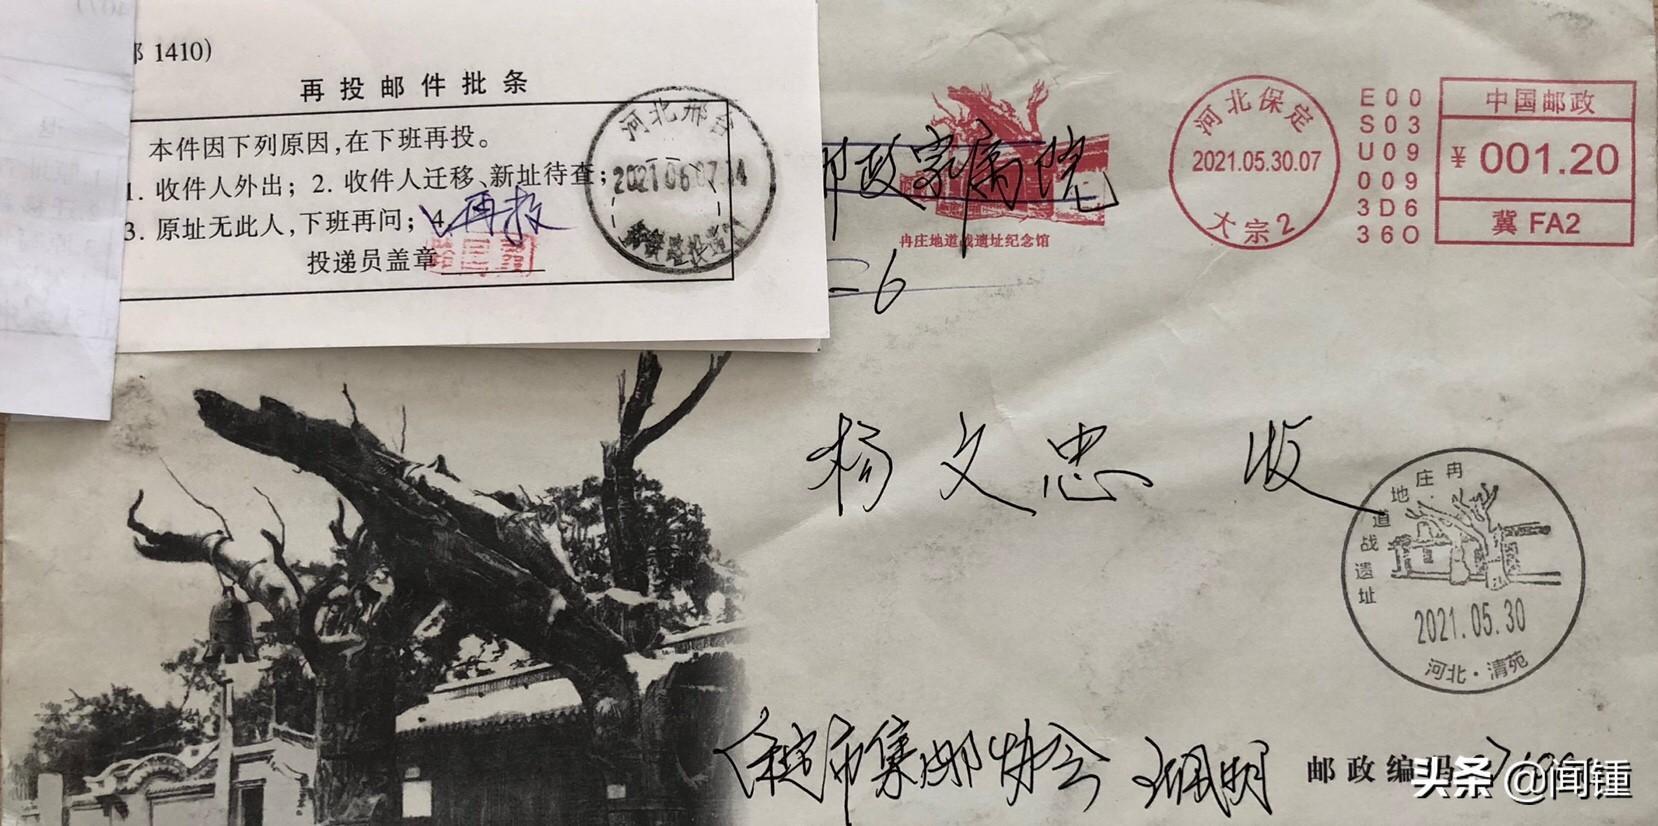 1410)
再投邮件批条
本件因下列原因,在下班再投。
1. 收件人外出; 2. 收件人迁移、新址待查;
3. 原址无此人, 下班再问; 4. 再投
投递员盖章
河北邢台
2021 06 07 14
邮政家属院
冉庄地道战遗址纪念馆
-6
河北保定
2021.05.30.07
大宗2
E00
S03
U09
009
3D6
360
中国邮政
¥ 001.20
冀 FA2
杨文忠 收
冉庄地道战遗址
2021.05.30
河北·清苑
保定市集邮协会
邮政编码
头条 @闻锺